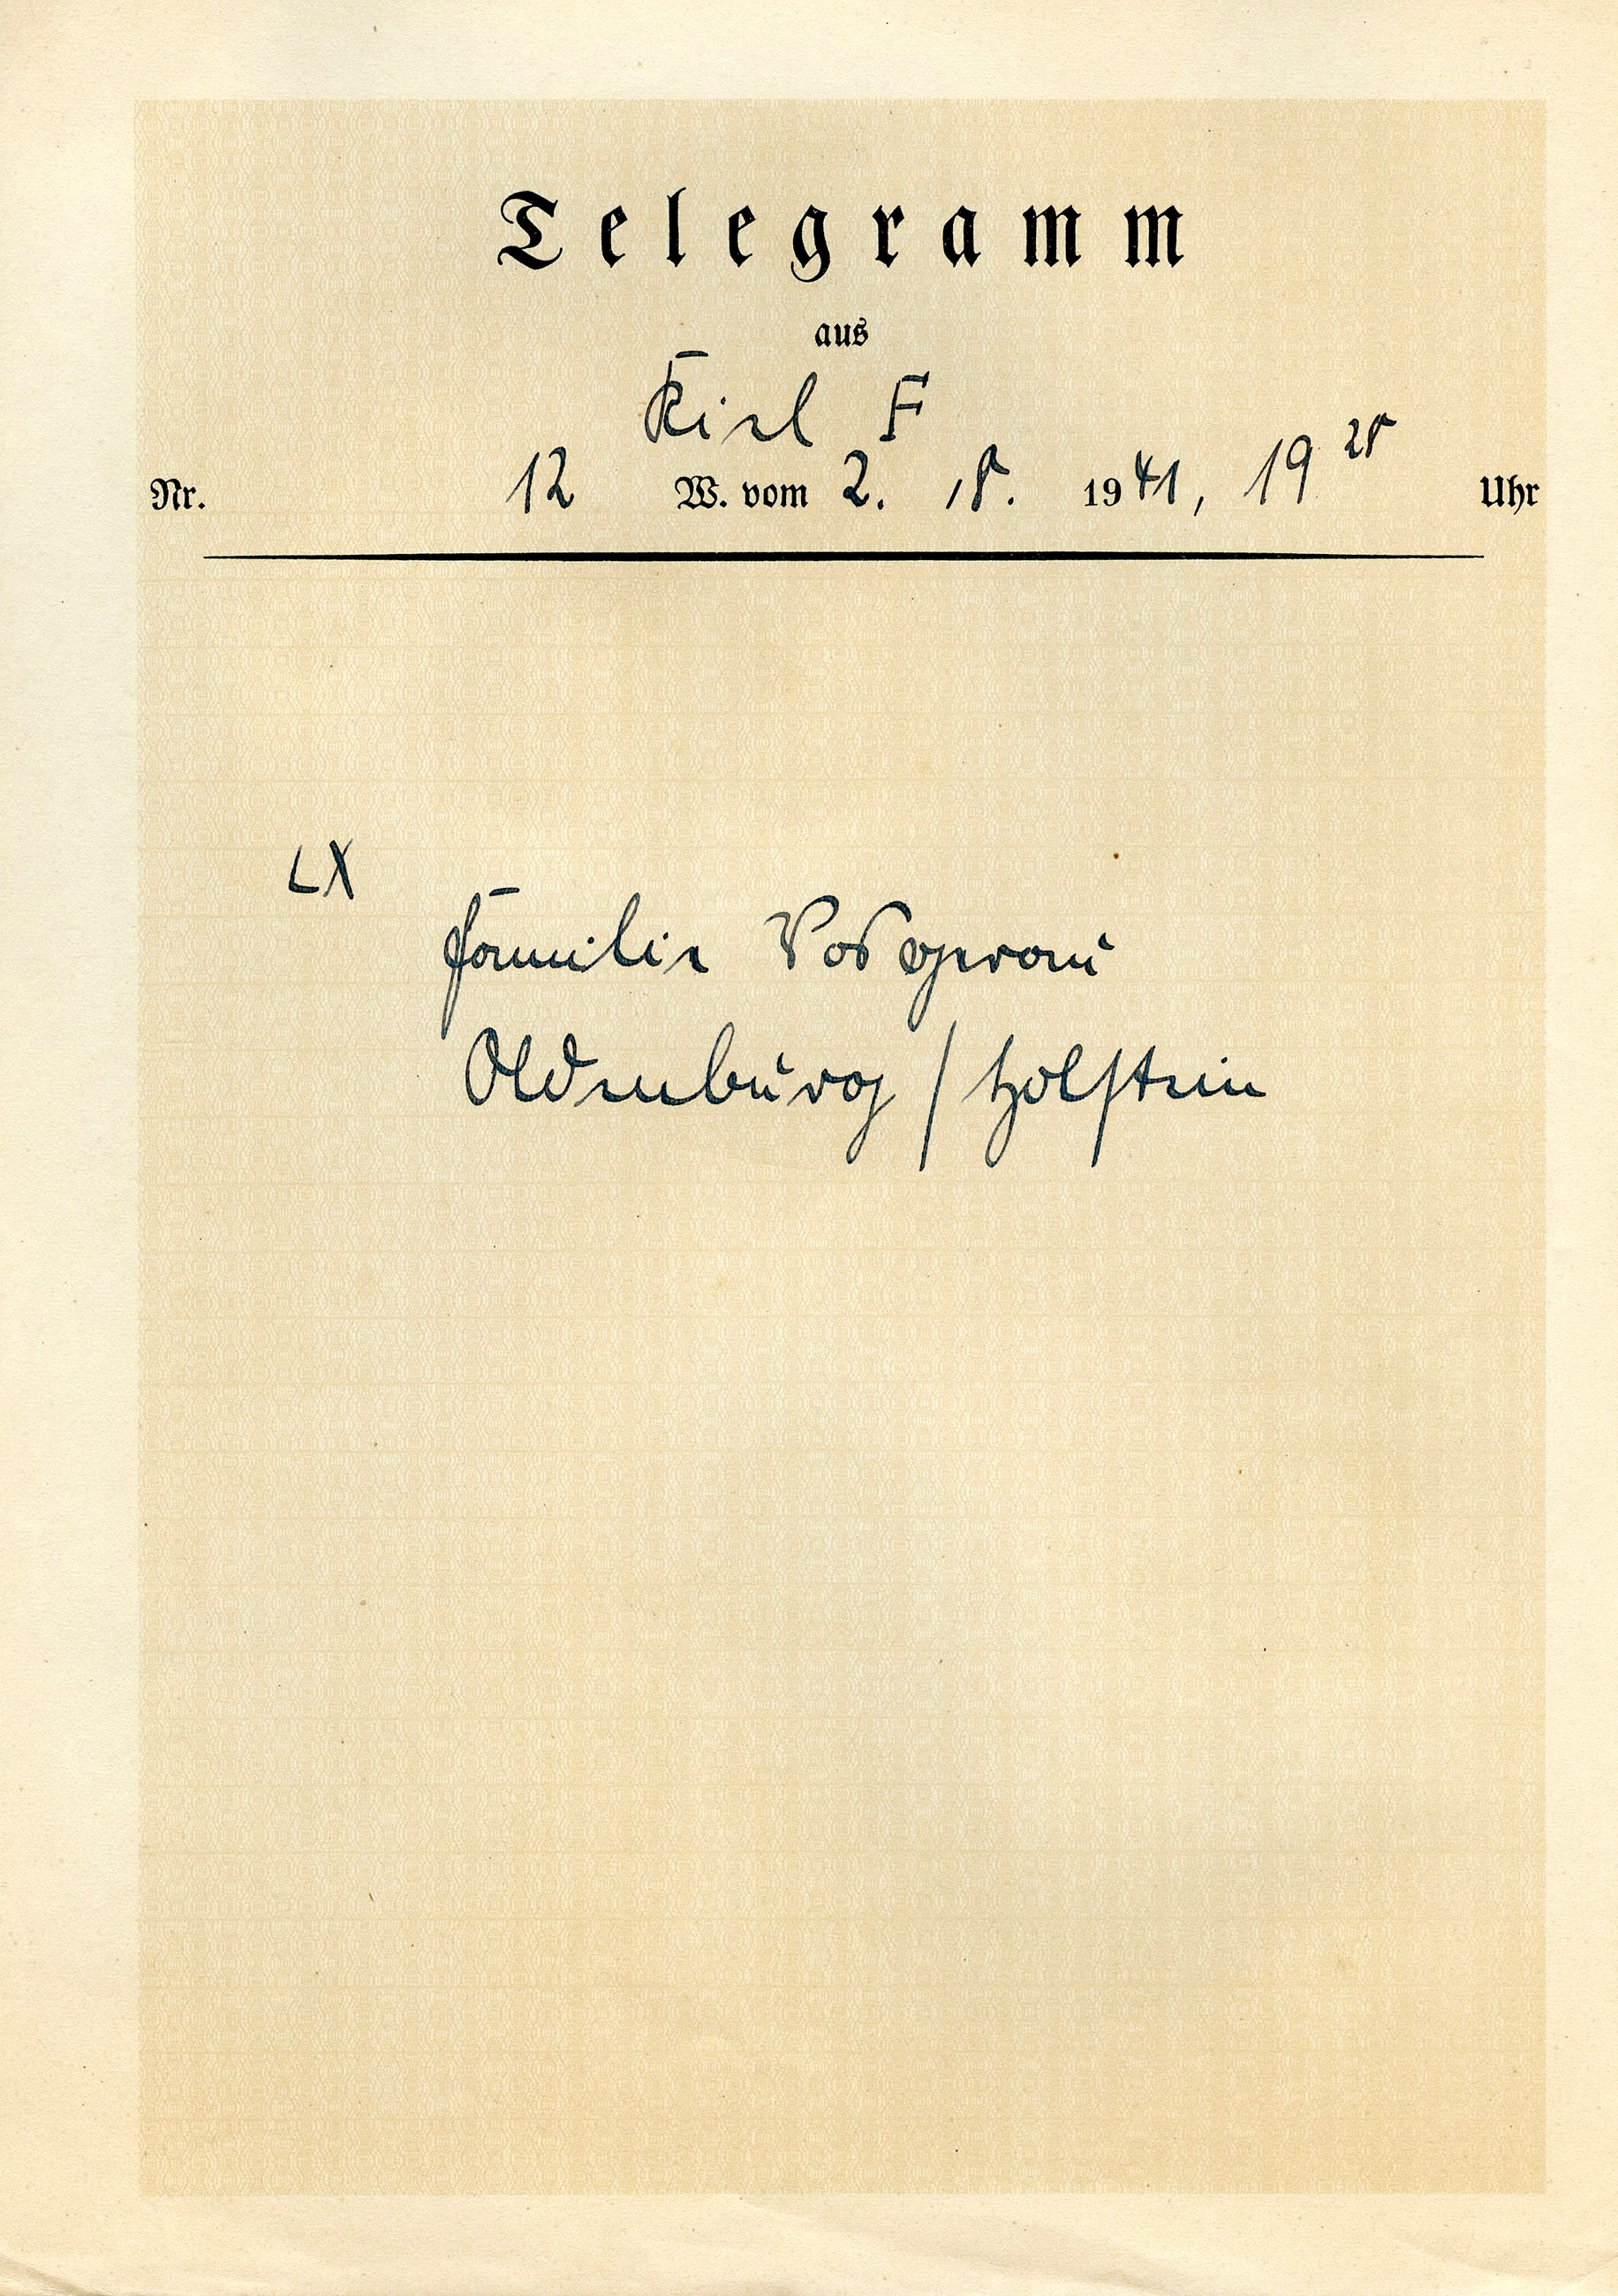 Telegramm
aus
Kiel F
Nr. 12 W. vom 2. 5. 1941, 19 25 Uhr
LX
Familie Vosgerau
Oldenburg / Holstein